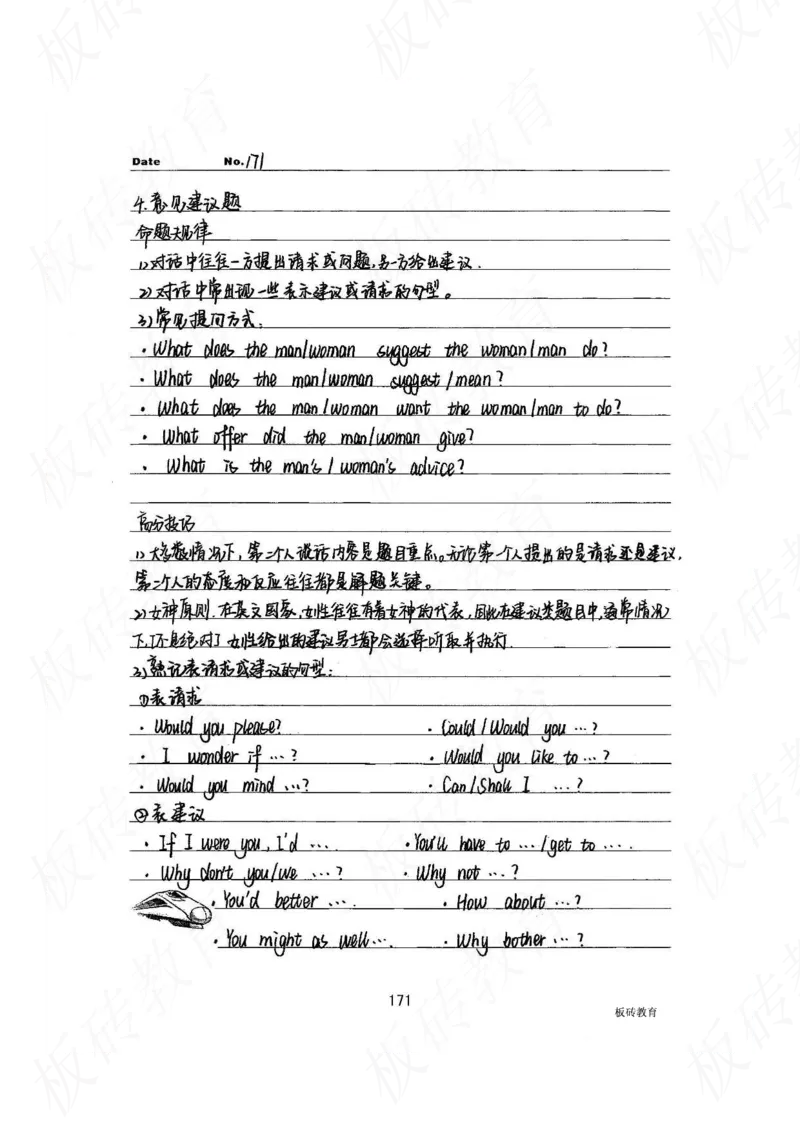 Date No. 171
4.意见建议题
命题规律
1)对话中往往一方提出请求或问题,另一方给出建议.
2)对话中常出现一些表示建议或请求的句型。
3)常见提问方式:
· What does the man/woman suggest the woman/man do?
· What does the man/woman suggest/mean?
· What does the man/woman want the woman/man to do?
· What offer did the man/woman give?
· What is the man's/woman's advice?
高分技巧
1)大多数情况下,第二个人谈话内容是题目重点。无论第一个人提出的是请求还是建议,
第二个人的态度和反应往往都是解题关键。
2)女神原则.在英文国家,女性往往有着女神的代表,因此在建议类题目中,通常情况
下,(不是绝对)女性给出的建议男士都会选择听取并执行.
3)熟记表请求或建议的句型:
①表请求
· Would you please? · Could/Would you …?
· I wonder if …? · Would you like to …?
· Would you mind …? · Can/Shall I …?
②表建议
· If I were you, I'd …. · You'll have to …/get to ….
· Why don't you/we …? · Why not …?
· You'd better …. · How about …?
· You might as well…. · Why bother …?
171
板砖教育